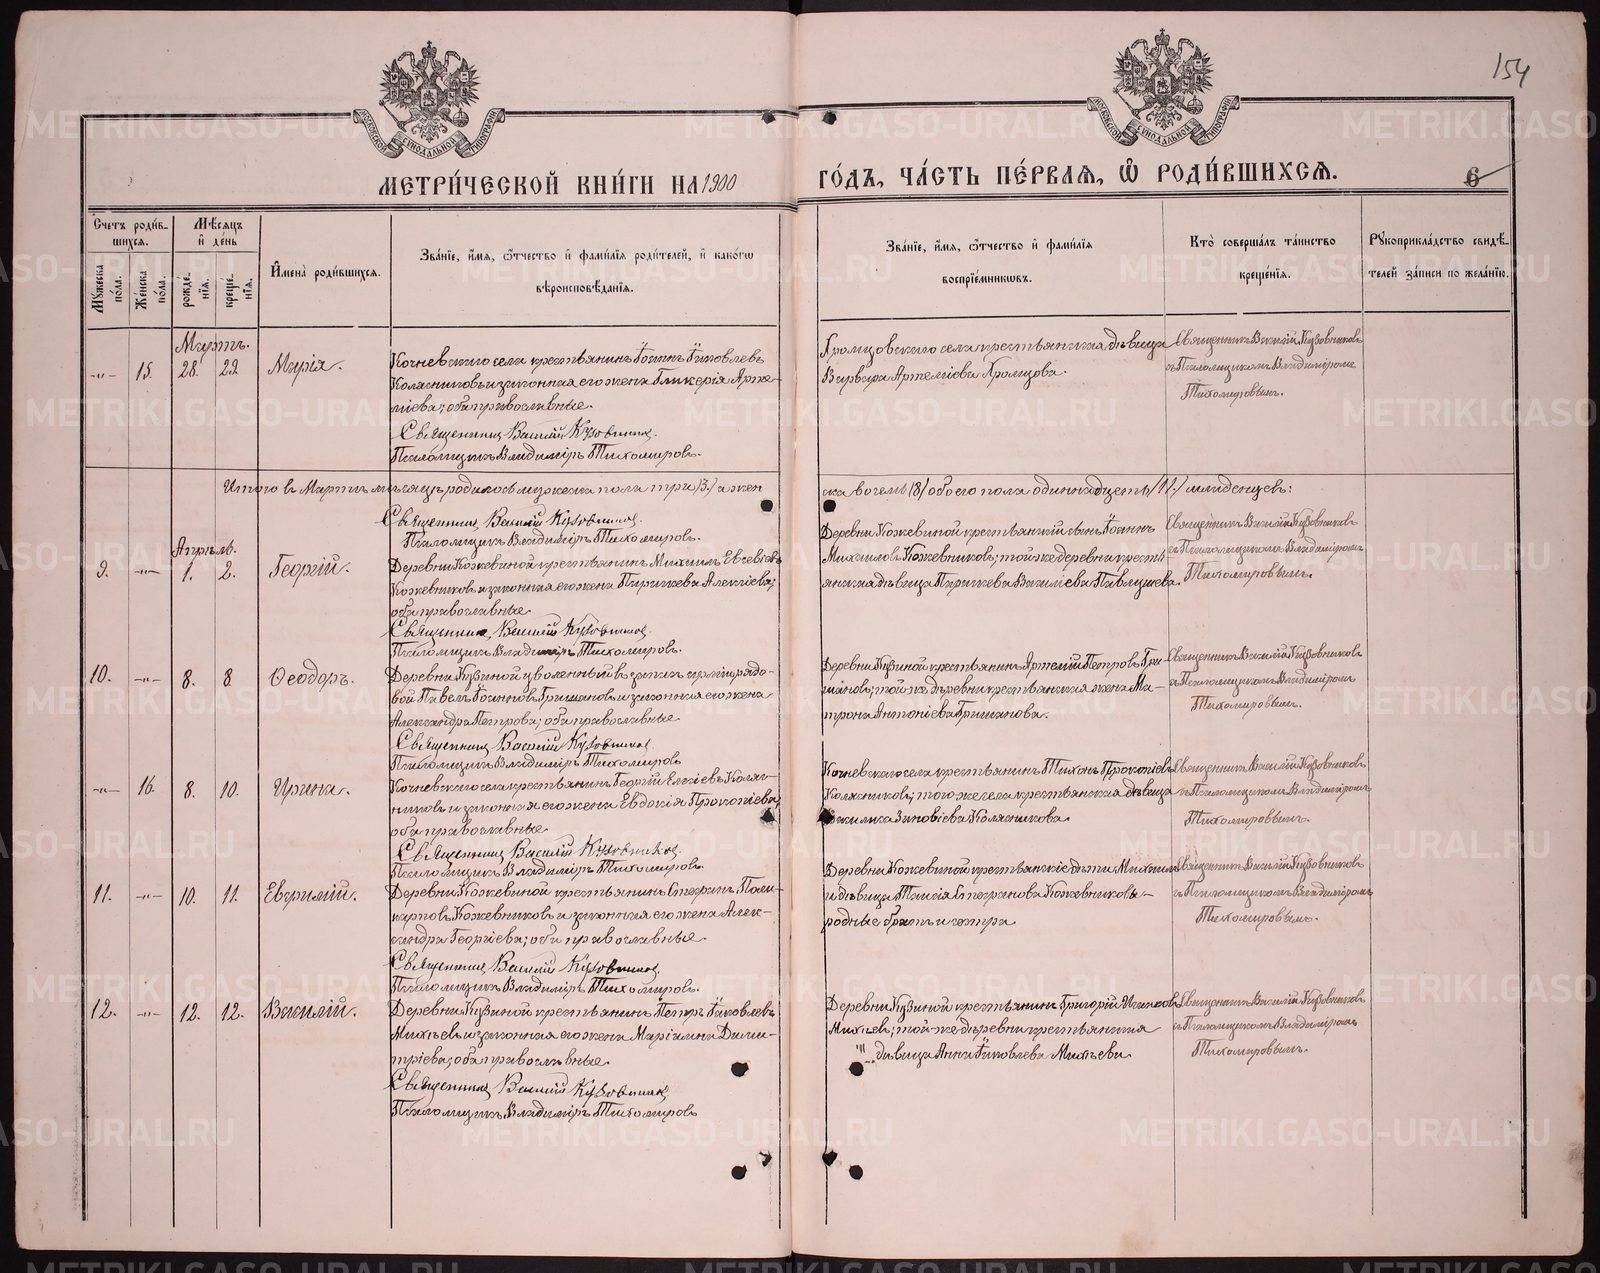 154
МЕТРИ́ЧЕСКОЙ КНИ́ГИ НА 1900
ГО́ДЪ, ЧА́СТЬ ПЕ́РВАЯ, Ѿ РОДИ́ВШИХСЯ.
6
Счетъ роди́в-
шихся.
Мѣ́сяцъ
и҆ де́нь
И҆мена̀ роди́вшихся.
Зва́нїе, и҆́мя, ѻ҆́тчество и҆ фами́лїя роди́телей, и҆ како́гѡ
вѣроисповѣ́данїя.
Зва́нїе, и҆́мя, ѻ҆́тчество и҆ фами́лїя
воспрїе́мникѡвъ.
Кто̀ соверша́лъ та́инство
креще́нїя.
Рꙋкоприкла́дство свидѣ́-
телей за́писи по жела́нїю.
Мꙋ́жеска
по́ла.
Же́нска
по́ла.
рожде́-
нїя.
креще́-
нїя.
Мартъ.
-"- 15. 28. 29. Марія.
Кочневскаго села крестьянинъ Іоаннъ Іаковлевъ
Колясниковъ и законная его жена Гликерія Арте-
міева; оба православные.
Священникъ Василій Кузовниковъ.
Псаломщикъ Владиміръ Тихомировъ.
Храмцовскаго села крестьянская дѣвица
Варвара Артеміева Храмцова.
Священникъ Василій Кузовниковъ
съ Псаломщикомъ Владиміромъ
Тихомировымъ.
Итого въ Мартѣ мѣсяцѣ родилось мужеска пола три /3./ а жен
ска восемь /8/ обоего пола одиннадцать /11./ младенцевъ:
Священникъ Василій Кузовниковъ.
Псаломщикъ Владиміръ Тихомировъ.
Апрѣль.
9. -"- 1. 2. Георгій.
Деревни Кожевиной крестьянинъ Михаилъ Евсевіевъ
Кожевниковъ и законная его жена Параскева Алексіева;
оба православные.
Священникъ Василій Кузовниковъ.
Псаломщикъ Владиміръ Тихомировъ.
Деревни Кожевиной крестьянскій сынъ Іоаннъ
Михаиловъ Кожевниковъ; той же деревни кресть
янская дѣвица Параскева Василіева Павлушева.
Священникъ Василій Кузовниковъ
съ Псаломщикомъ Владиміромъ
Тихомировымъ.
10. -"- 8. 8. Ѳеодоръ.
Деревни Кузиной уволенный въ запасъ арміи рядо-
вой Павелъ Іоанновъ Гришановъ и законная его жена
Александра Петрова; оба православные
Священникъ Василій Кузовниковъ.
Псаломщикъ Владиміръ Тихомировъ
Деревни Кузиной крестьянинъ Артемій Петровъ Гри-
шановъ; той же деревни крестьянская жена Ма-
трона Антоніева Гришанова.
Священникъ Василій Кузовниковъ
съ Псаломщикомъ Владиміромъ
Тихомировымъ.
-"- 16. 8. 10. Ирина.
Кочневскаго села крестьянинъ Георгій Коляс-
никовъ и законная его жена Евдокія Прокопіева;
оба православные
Священникъ Василій Кузовниковъ.
Псаломщикъ Владиміръ Тихомировъ.
Кочневскаго села крестьянинъ Тихонъ Прокопіевъ
Колясниковъ; того же села крестьянская дѣвица
Зиновіева Колясникова.
Священникъ Василій Кузовниковъ
съ Псаломщикомъ Владиміромъ
Тихомировымъ.
11. -"- 10. 11. Евѳимій.
Деревни Кожевиной крестьянинъ Стефанъ Поли-
карповъ Кожевниковъ и законная его жена Алек-
сандра Георгіева; оба православные.
Священникъ Василій Кузовниковъ.
Псаломщикъ Владиміръ Тихомировъ.
Деревни Кожевиной крестьянскіе дѣти Михаилъ
и дѣвица Таисія Стефанова Кожевниковы-
родные братъ и сестра
Священникъ Василій Кузовниковъ
съ Псаломщикомъ Владиміромъ
Тихомировымъ.
12. -"- 12. 12. Василій.
Деревни Кузиной крестьянинъ Петръ Іаковлевъ
Михѣевъ и законная его жена Маріамна Дими-
тріева; оба православные.
Священникъ Василій Кузовниковъ
Псаломщикъ Владиміръ Тихомировъ
Деревни Кузиной крестьянинъ Григорій
Михѣевъ; той-же деревни крестьянская
дѣвица Анна Іаковлева Михѣева
Священникъ Василій Кузовниковъ
съ Псаломщикомъ Владиміромъ
Тихомировымъ.
METRIKI.GASO-URAL.RU